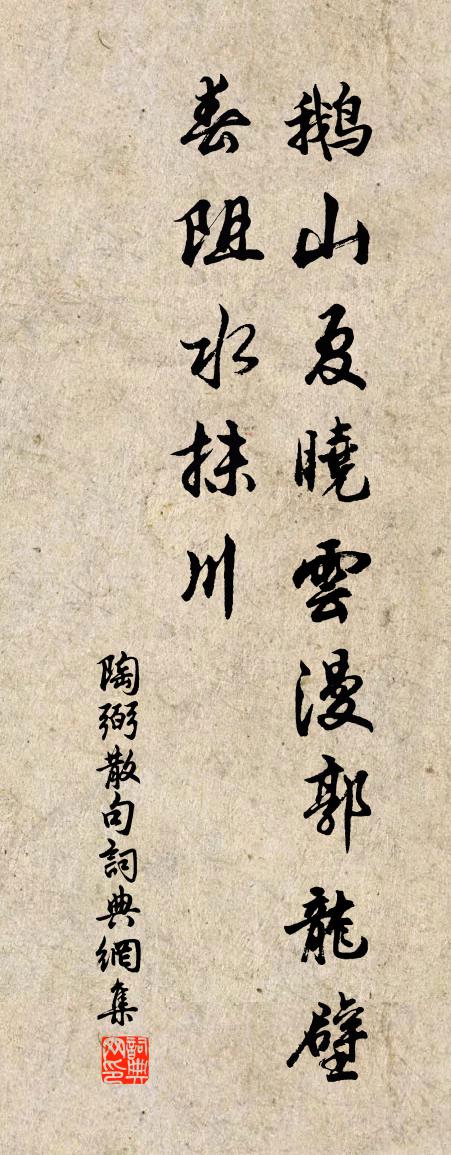 鵝山夏曉雲漫郭龍壁
春阻水抹川
陶弼散句詞典網集
詞典网印